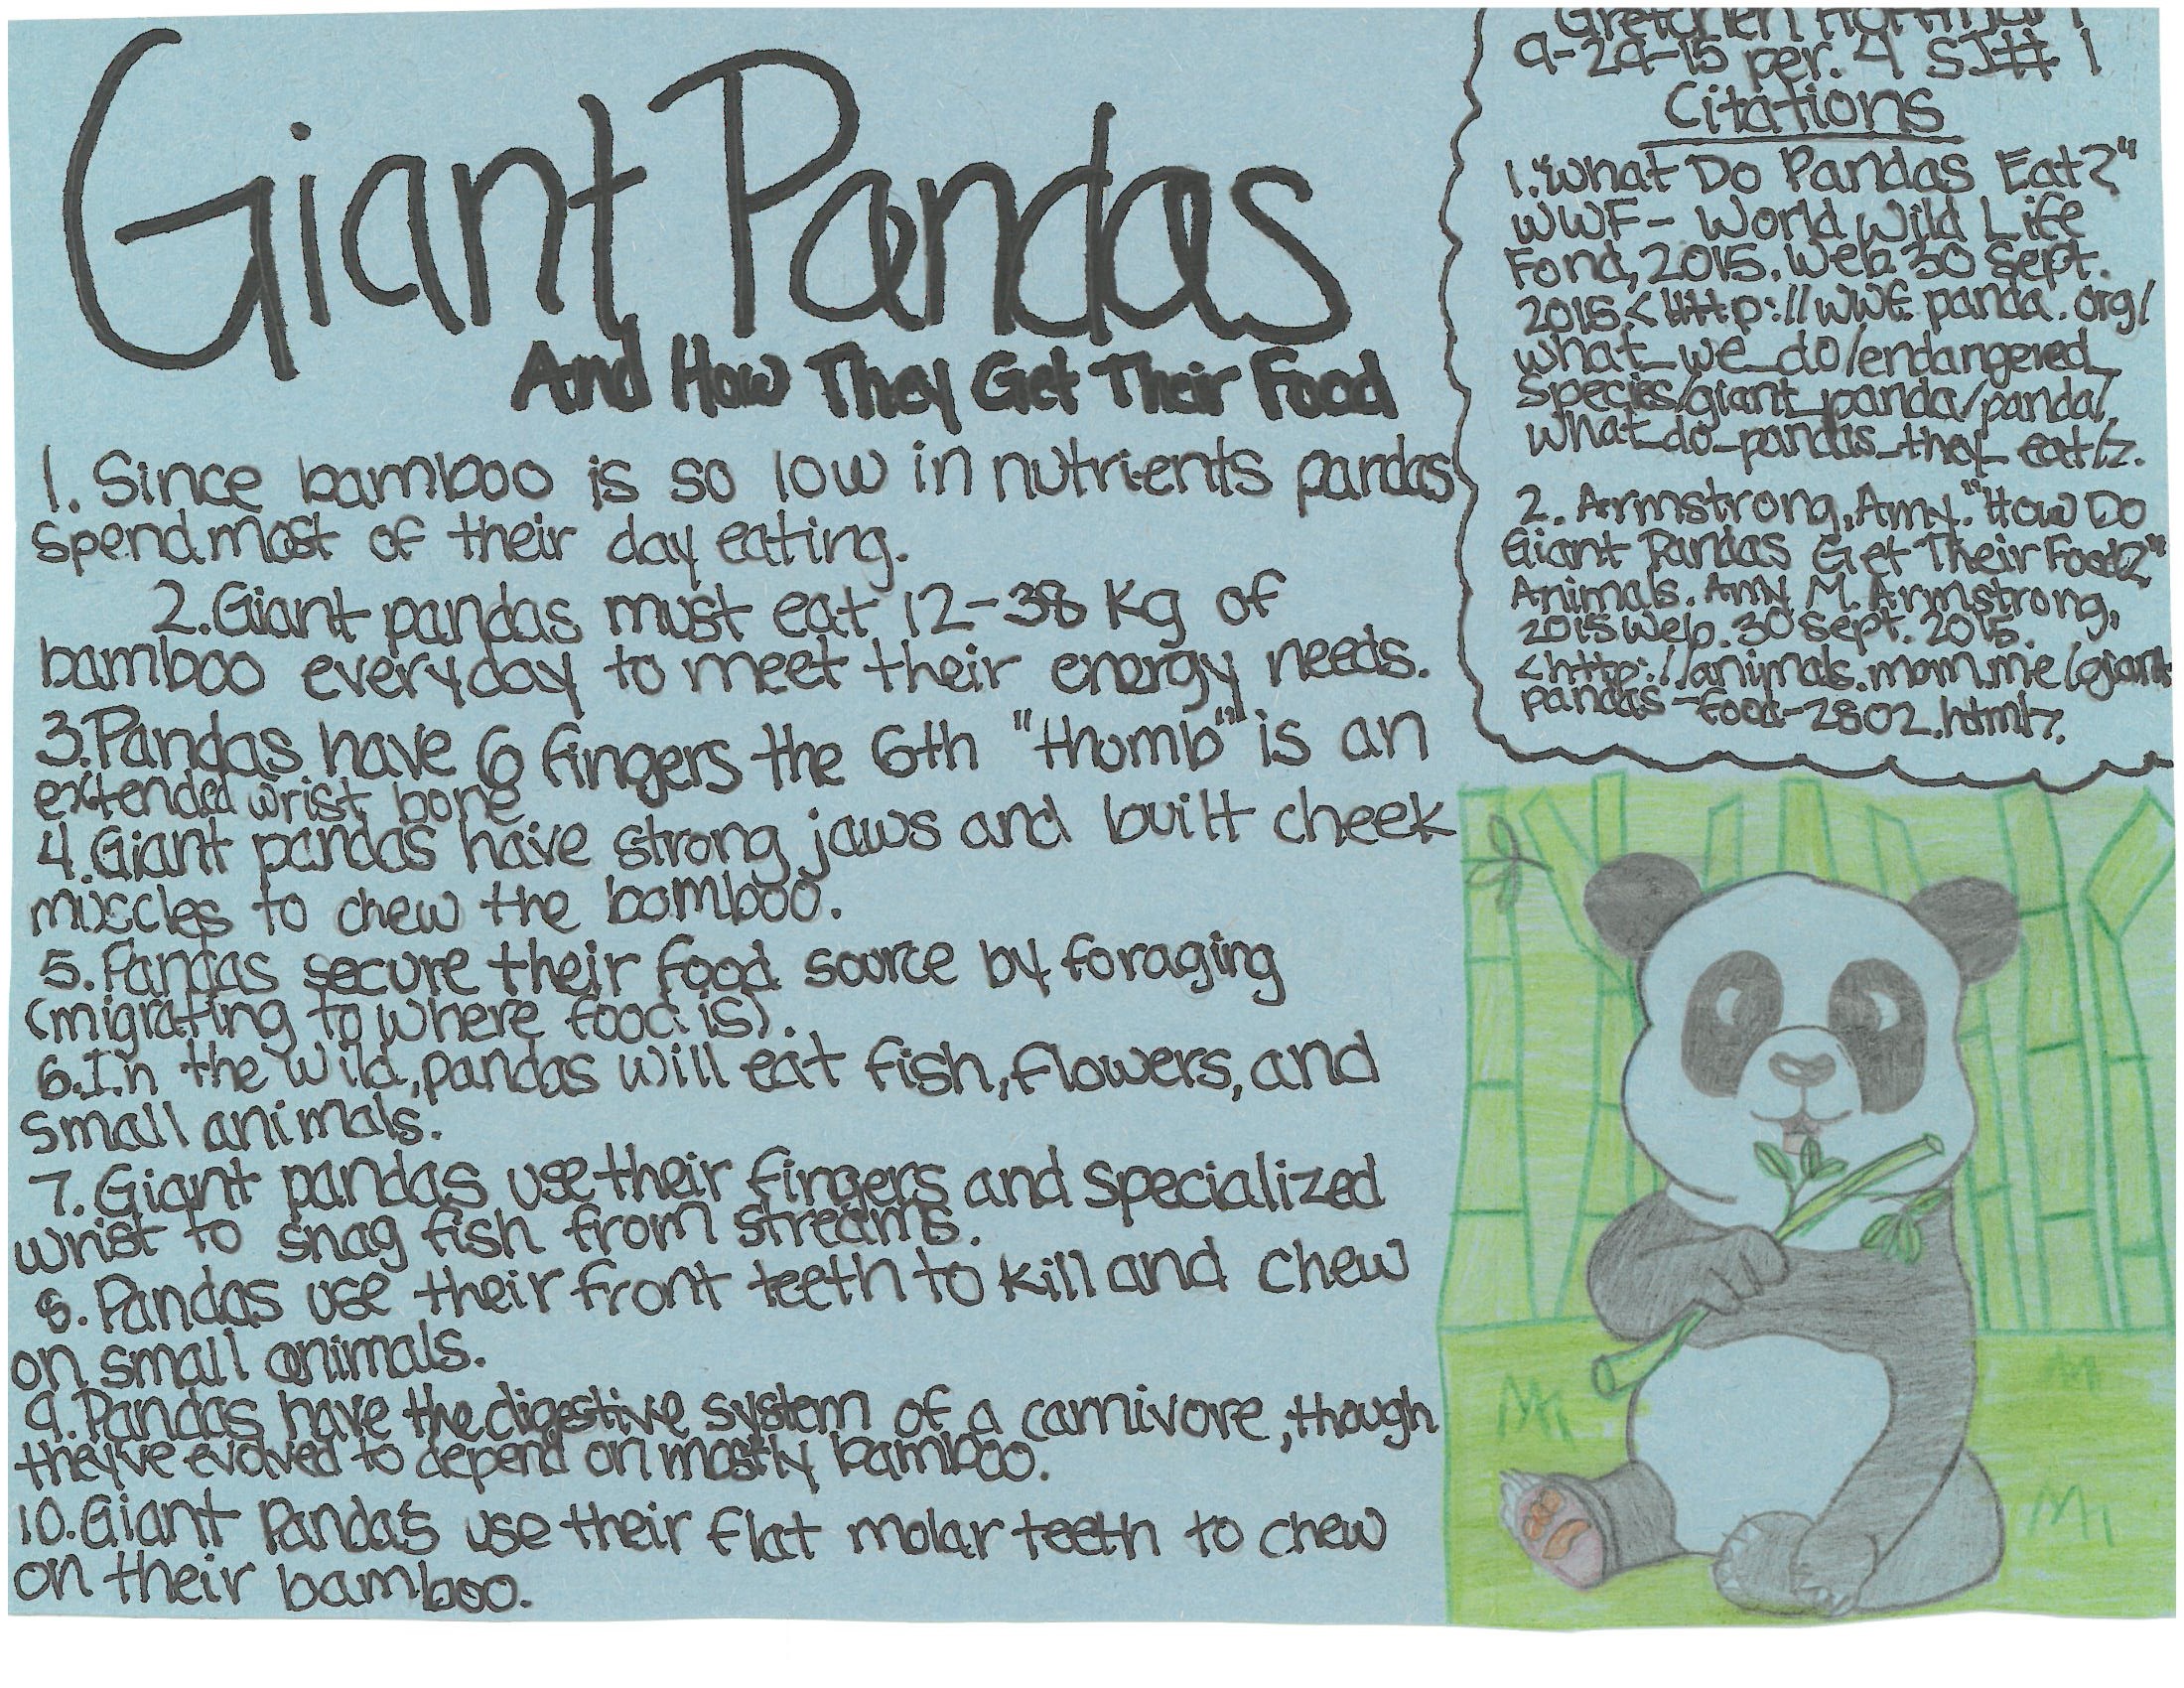 Giant Pandas
And How They Get Their Food
1. Since bamboo is so low in nutrients pandas
spend most of their day eating.
2. Giant pandas must eat 12-38 Kg of
bamboo everyday to meet their energy needs.
3. Pandas have 6 fingers the 6th "thumb" is an
extended wrist bone
4. Giant pandas have strong jaws and built cheek
muscles to chew the bamboo.
5. Pandas secure their food source by foraging
(migrating to where food is).
6. In the wild, pandas will eat fish, flowers, and
small animals.
7. Giant pandas use their fingers and specialized
wrist to snag fish from streams.
8. Pandas use their front teeth to kill and chew
on small animals.
9. Pandas have the digestive system of a carnivore, though
they've evolved to depend on mostly bamboo.
10. Giant Pandas use their flat molar teeth to chew
on their bamboo.
Gretchen Hoffman
9-29-15 per. 4 SJ# 1
Citations
1. "What Do Pandas Eat?"
WWF- World Wild Life
Fond, 2015. Web 30 Sept.
2015 <Http://wwf.panda.org/
what_we_do/endangered_
species/giant_panda/panda/
what_do_pandas_they_eat/>.
2. Armstrong, Amy. "How Do
Giant Pandas Get Their Food?"
Animals. Amy M. Armstrong,
2015 Web. 30 Sept. 2015.
<http://animals.mom.me/giant-
pandas-food-2802.html>.